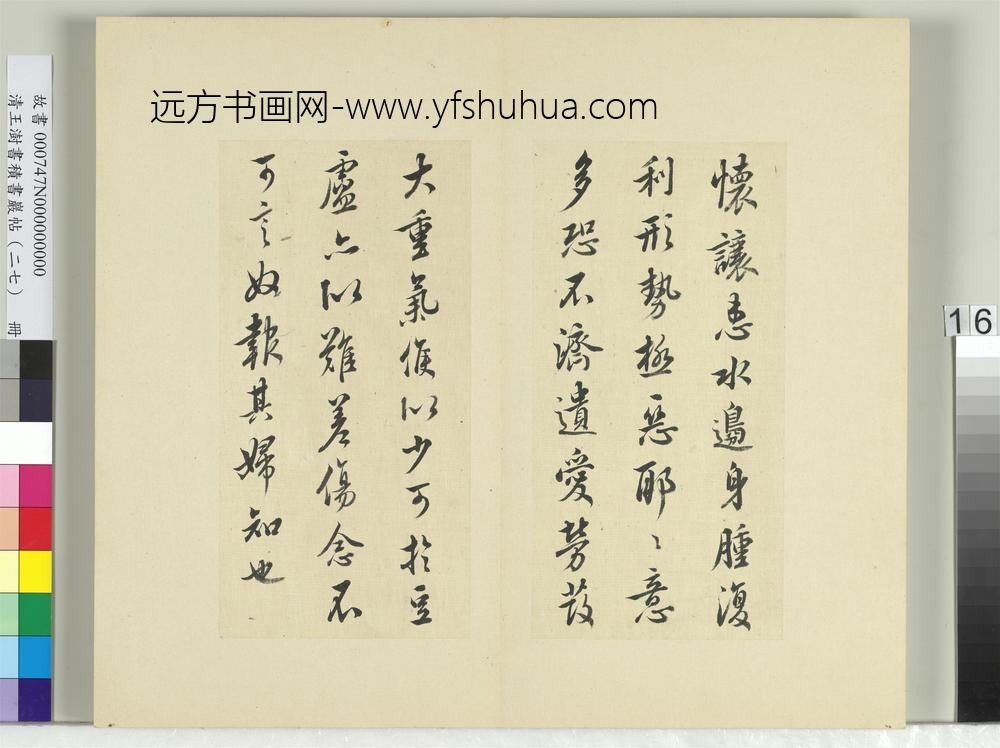 远方书画网-www.yfshuhua.com
懷讓患水邊身腫復
利形勢極惡耶〻意
多恐不濟遺愛勞
大重氣侯以少可於豆
虛亦以難差傷念不
可言奴報其婦知也
故書 000747N000000000
清王澍書積書巖帖(二七) 冊
16